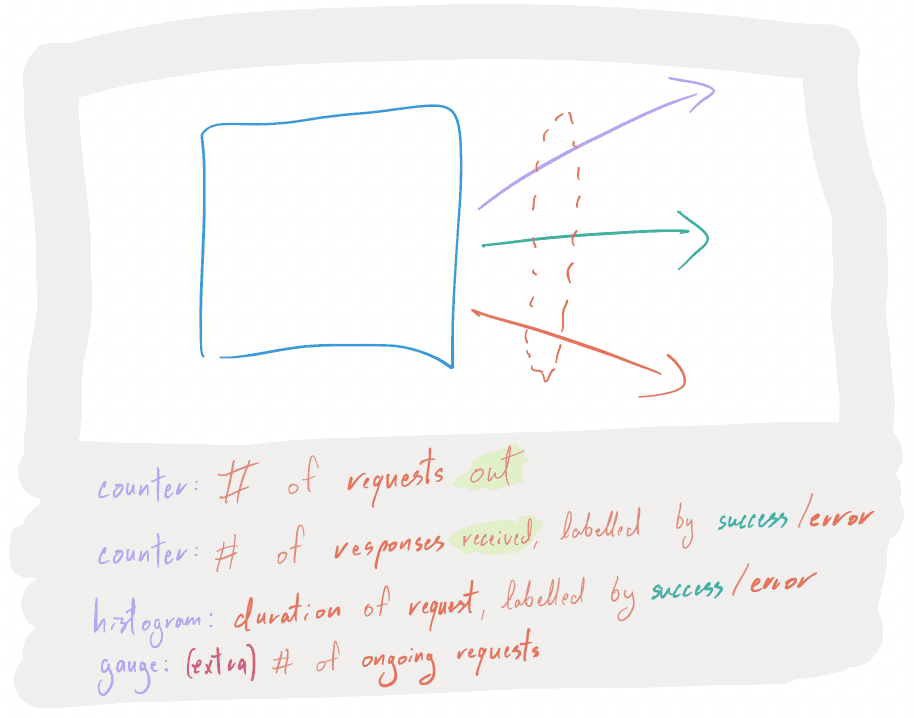 counter: # of requests out
counter: # of responses received, labelled by success/error
histogram: duration of request, labelled by success/error
gauge: (extra) # of ongoing requests